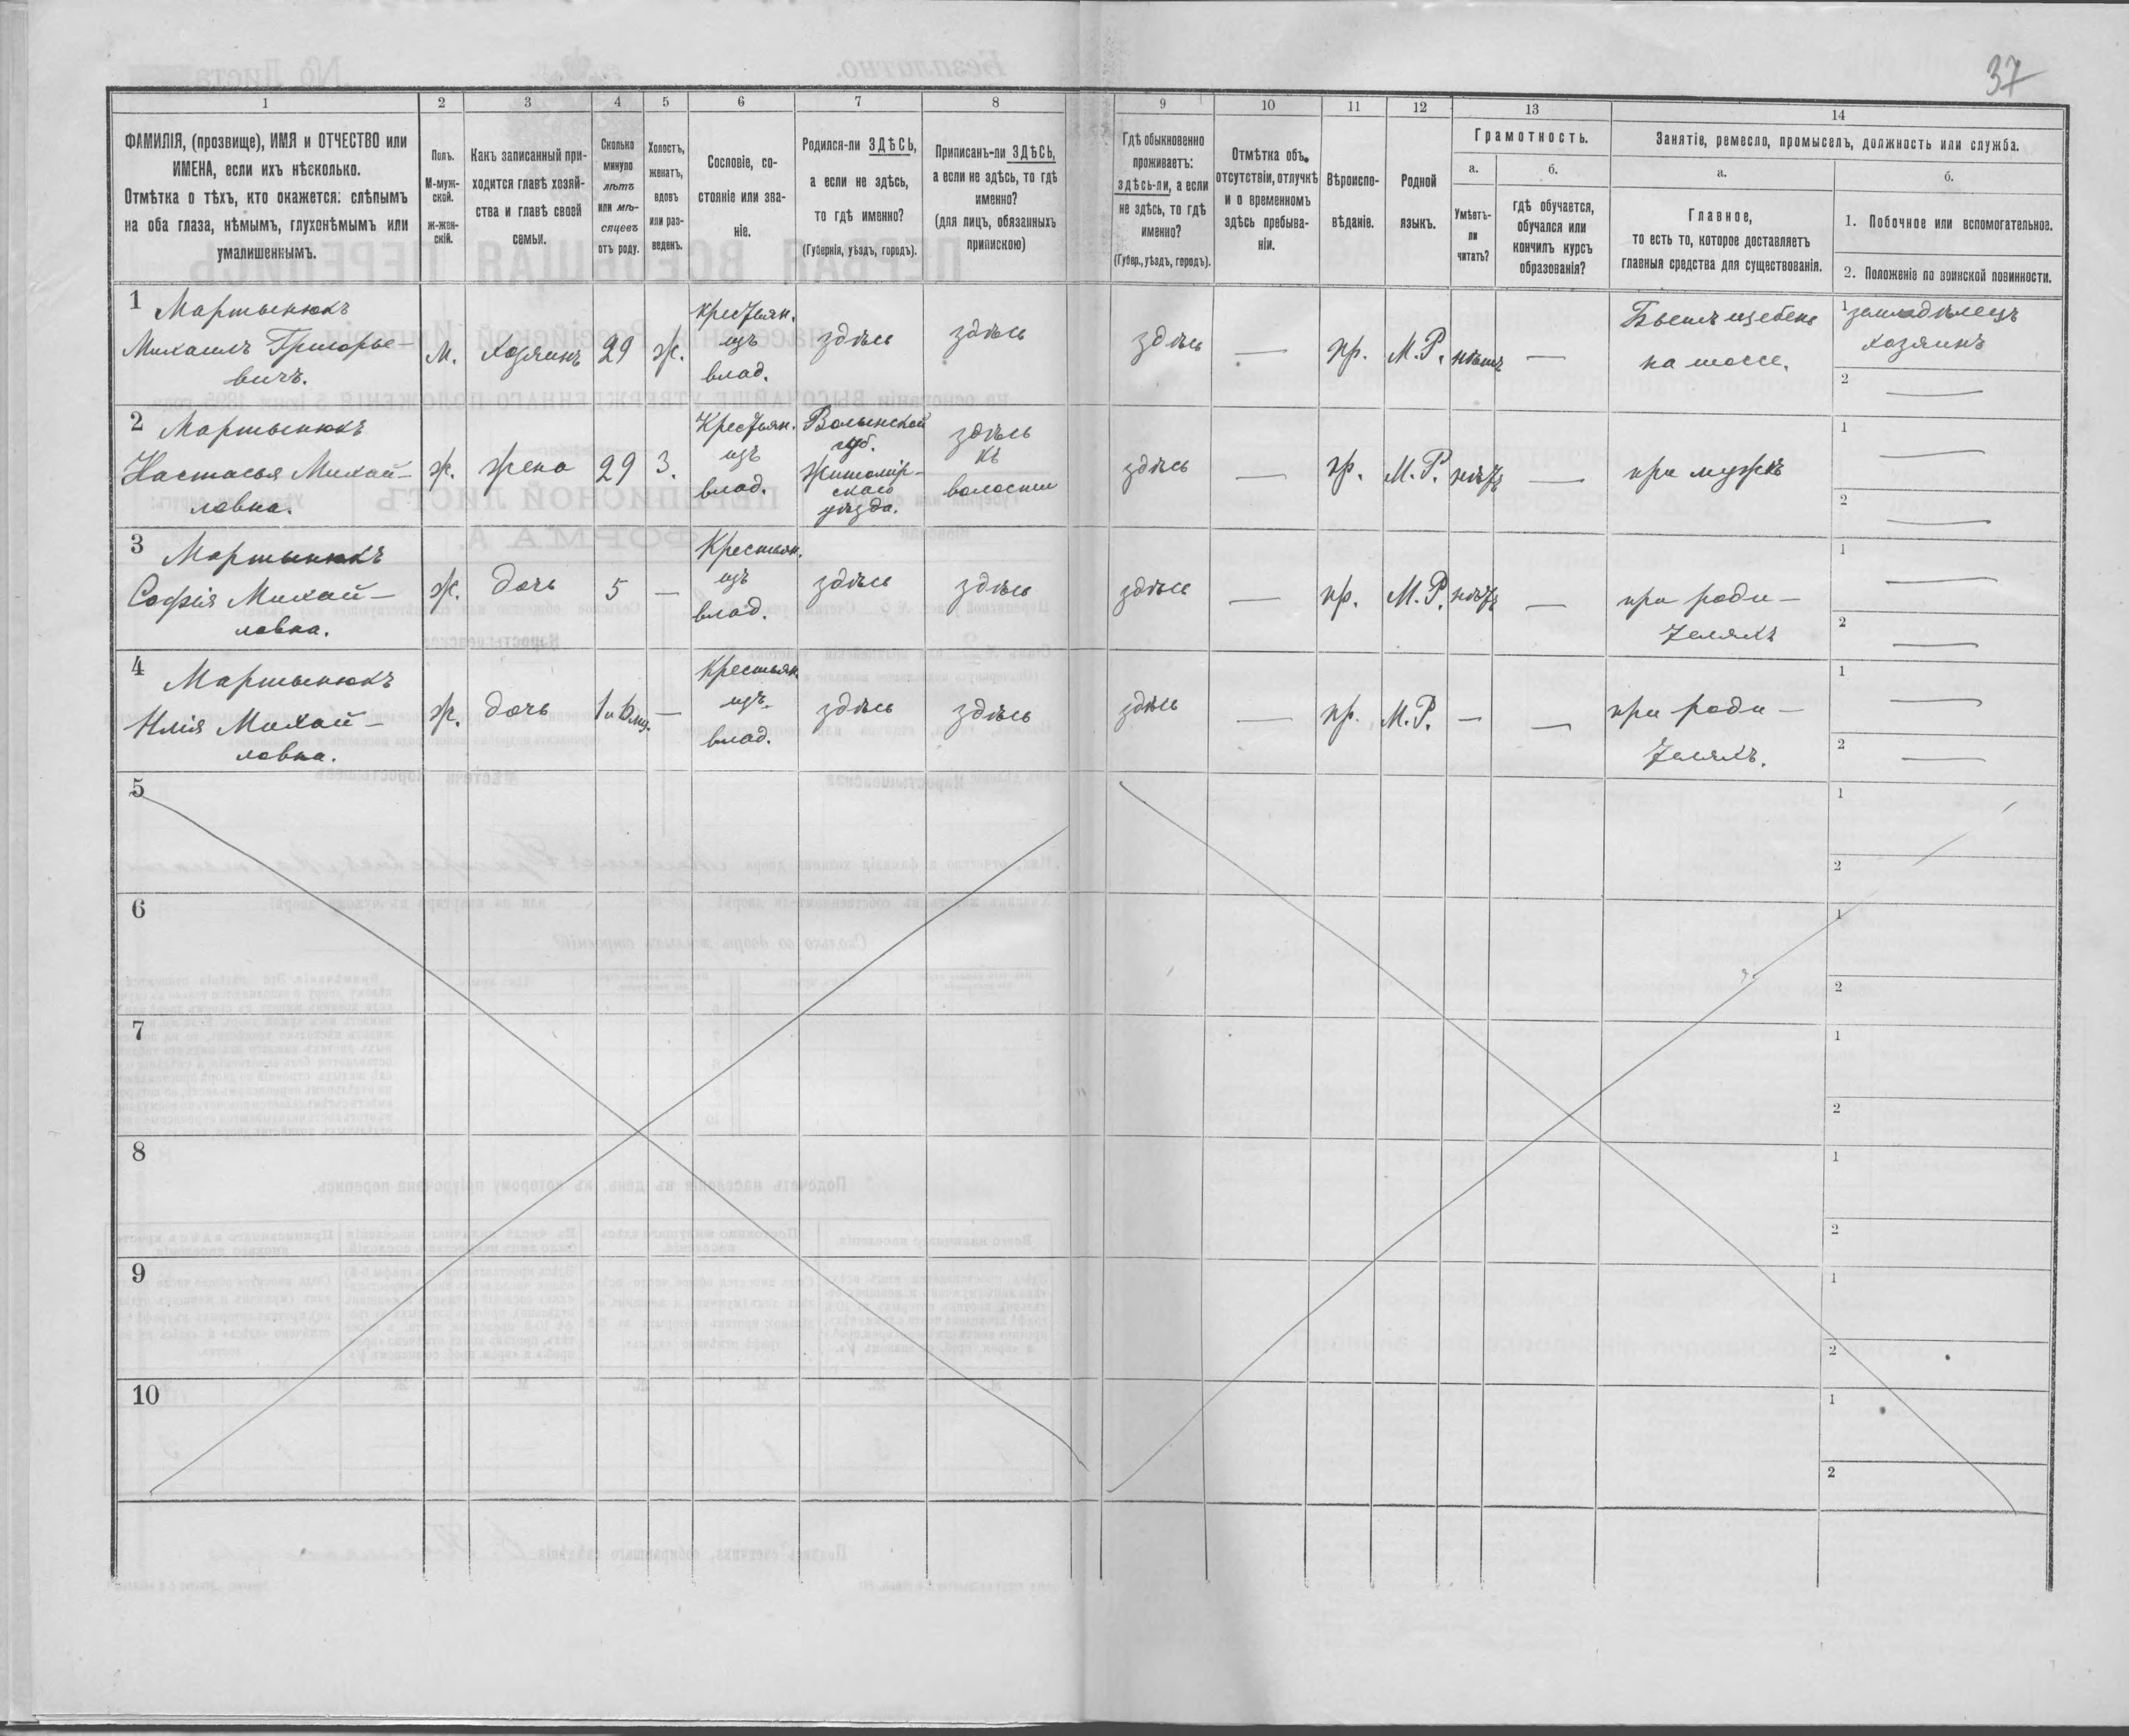 37
1
2
3
4
5
6
7
8
9
10
11
12
13
14
ФАМИЛІЯ, (прозвище), ИМЯ и ОТЧЕСТВО или
ИМЕНА, если ихъ нѣсколько.
Отмѣтка о тѣхъ, кто окажется: слѣпымъ
на оба глаза, нѣмымъ, глухонѣмымъ или
умалишеннымъ.
Полъ.
М-муж-
ской.
ж-жен-
скій.
Какъ записанный при-
ходится главѣ хозяй-
ства и главѣ своей
семьи.
Сколько
минуло
лѣтъ
или мѣ-
сяцевъ
отъ роду.
Холостъ,
женатъ,
вдовъ
или раз-
веденъ.
Сословіе, со-
стояніе или зва-
ніе.
Родился-ли ЗДѢСЬ,
а если не здѣсь,
то гдѣ именно?
(Губернія, уѣздъ, городъ).
Приписанъ-ли ЗДѢСЬ,
а если не здѣсь, то гдѣ
именно?
(для лицъ, обязанныхъ
припискою)
Гдѣ обыкновенно
проживаетъ:
здѣсь-ли, а если
не здѣсь, то гдѣ
именно?
(Губер., уѣздъ, городъ).
Отмѣтка объ
отсутствіи, отлучкѣ
и о временномъ
здѣсь пребыва-
ніи.
Вѣроиспо-
вѣданіе.
Родной
языкъ.
Грамотность.
а.
Умѣетъ-
ли
читать?
б.
гдѣ обучается,
обучался или
кончилъ курсъ
образованія?
Занятіе, ремесло, промыселъ, должность или служба.
а.
Главное,
то есть то, которое доставляетъ
главныя средства для существованія.
б.
1. Побочное или вспомогательное.
2. Положеніе по воинской повинности.
1 Мартынюкъ
Михаилъ Григорье-
вичъ.
М.
хозяинъ
29
ж.
крестьян.
изъ
влад.
здѣсь
здѣсь
здѣсь
—
пр.
М.Р.
нѣтъ
—
Бьетъ щебень
на шоссе.
1 земледѣлецъ
хозяинъ
2 —
2 Мартынюкъ
Настасья Михай-
ловна.
ж.
жена
29
З.
Крестьян.
изъ
влад.
Волынской
губ.
Житомір-
скаго
уѣзда.
здѣсь
къ
волости
здѣсь
—
пр.
М.Р.
нѣтъ
—
при мужѣ
1 —
2 —
3 Мартынюкъ
Софія Михай-
ловна.
Ж.
дочь
5
—
Крестьян.
изъ
влад.
здѣсь
здѣсь
здѣсь
—
пр.
М.Р.
нѣтъ
—
при роди-
теляхъ
1 —
2 —
4 Мартынюкъ
Михай-
ловна.
ж.
дочь
—
Крестьян.
изъ
влад.
здѣсь
здѣсь
здѣсь
—
пр.
М.Р.
—
—
при роди-
теляхъ.
1 —
2 —
5
1
2
6
1
2
7
1
2
8
1
2
9
1
2
10
1
2